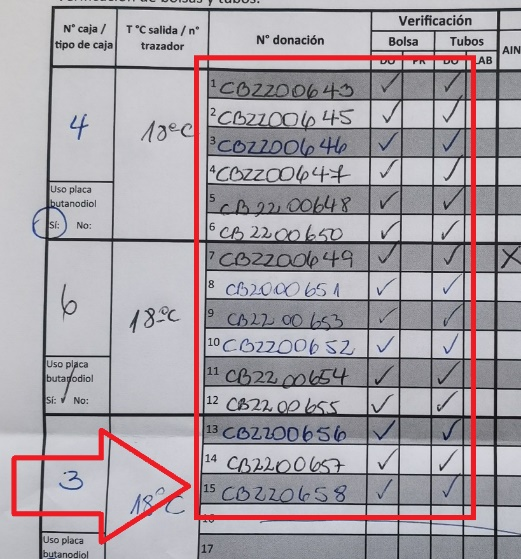 Verificación de bolsas y tubos.
Verificación
N° caja / tipo de caja
T °C salida / n° trazador
N° donación
Bolsa
Tubos
DO
PR
DO
LAB
AIN
4
18ºC
1 CB2200643 ✓ ✓
2 CB2200645 ✓ ✓
3 CB2200646 ✓ ✓
4 CB2200647 ✓ ✓
Uso placa
butanodiol
5 CB2200648 ✓ ✓
Sí: No:
6 CB2200650 ✓ ✓
7 CB2200649 ✓ ✓ X
6
18ºC
8 CB2000651 ✓ ✓
9 CB2200653 ✓ ✓
10 CB2200652 ✓ ✓
Uso placa
butanodiol
11 CB2200654 ✓ ✓
Sí: ✓ No:
12 CB2200655 ✓ ✓
13 CB2200656 ✓ ✓
3
18ºC
14 CB2200657 ✓ ✓
15 CB220658 ✓ ✓
16
Uso placa
butanodiol
17